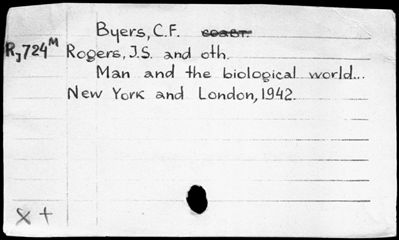 Byers, C.F. соавт.
Rj724M Rogers, J.S. and oth.
Man and the biological world...
New York and London, 1942.
X +